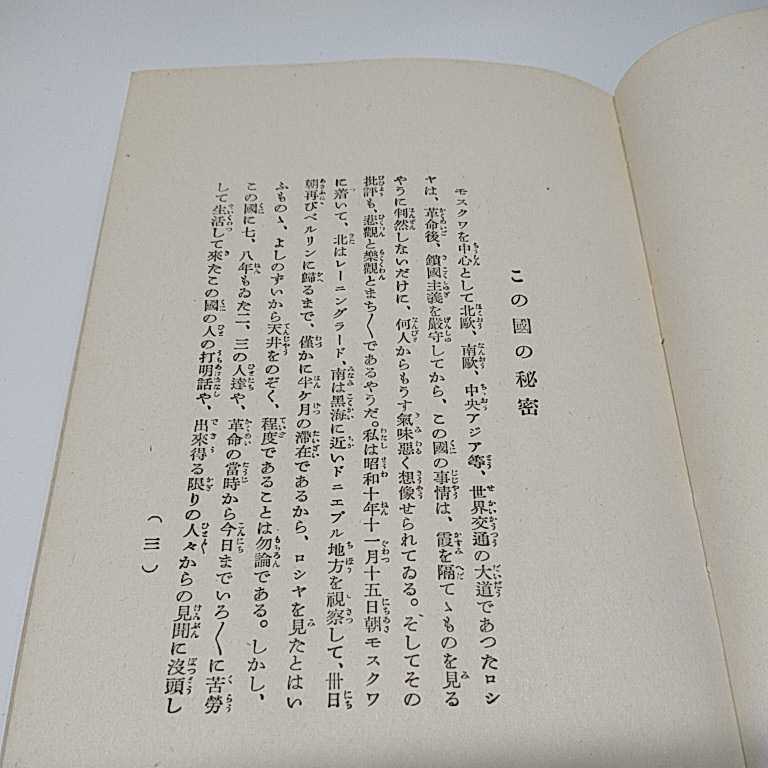 この國の秘密
モスクワを中心として北歐、南歐、中央アジア等、世界交通の大道であつたロシ
ヤは、革命後、鎖國主義を嚴守してから、この國の事情は、霞を隔てゝものを見る
やうに判然しないだけに、何人からもうす氣味惡く想像せられてゐる。そしてその
批評も、悲觀と樂觀とまち〱であるやうだ。私は昭和十年十一月十五日朝モスクワ
に着いて、北はレーニングラード、南は黑海に近いドニエプル地方を視察して、卅日
朝再びベルリンに歸るまで、僅かに半ケ月の滯在であるから、ロシヤを見たとはい
ふものゝ、よしのずいから天井をのぞく、程度であることは勿論である。しかし、
この國に七、八年もゐた二、三の人達や、革命の當時から今日までいろ〱に苦勞
して生活して來たこの國の人の打明話や、出來得る限りの人々からの見聞に沒頭し
(三)